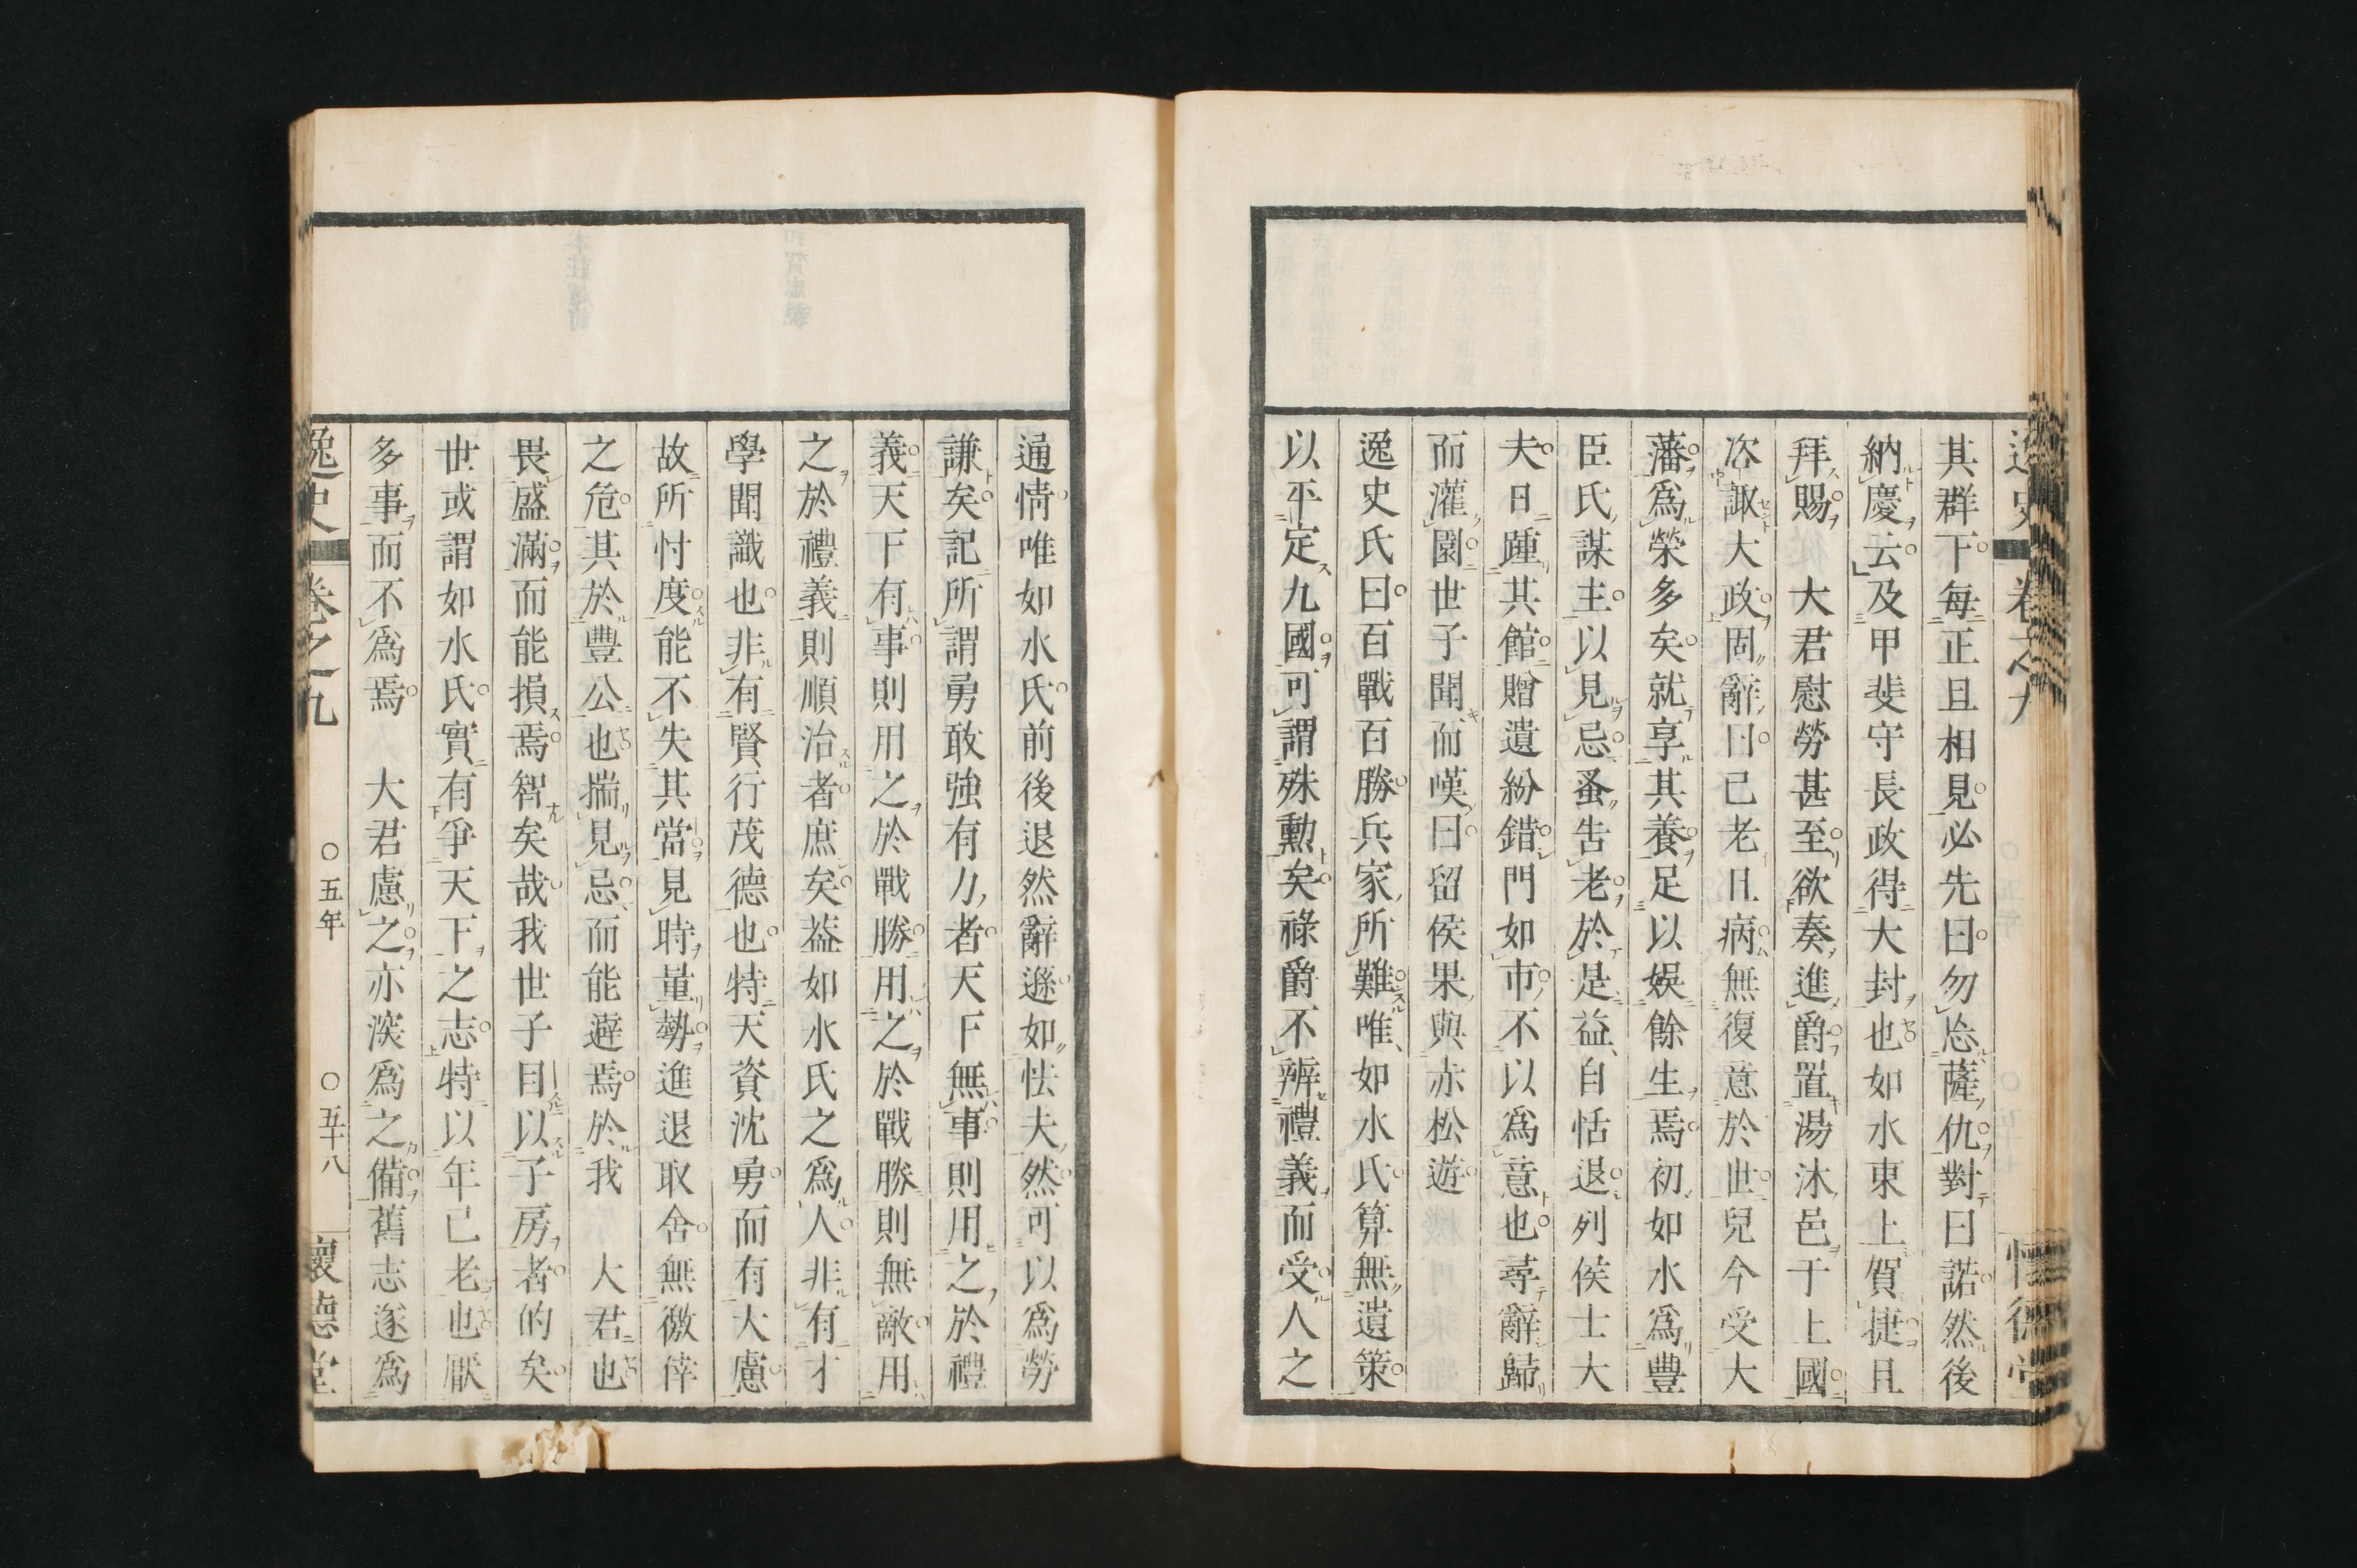 其群下每正旦相見必先曰勿忘薩仇對曰諾然後
納慶云及甲斐守長政得大封也如水東上賀捷且
拜賜　大君慰勞甚至欲奏進爵置湯沐邑于上國
咨諏大政固辭曰已老且病無復意於世兒今受大
藩為榮多矣就享其養足以娛餘生焉初如水為豐
臣氏謀主以見忌蚤告老於是益自恬退列侯士大
夫日踵其館贈遺紛錯門如市不以為意也尋辭歸
而灌園世子聞而嘆曰留侯果與赤松遊
逸史氏曰百戰百勝兵家所難唯如水氏算無遺策
以平定九國可謂殊勳矣祿爵不辨禮義而受人之
通情唯如水氏前後退然辭遜如怯夫然可以為勞
謙矣記所謂勇敢強有力者天下無事則用之於禮
義天下有事則用之於戰勝用之於戰勝則無敵用
之於禮義則順治者庶矣葢如水氏之為人非有才
學聞識也非有賢行茂德也特天資沈勇而有大慮
故所忖度能不失其當見時量勢進退取舍無徼倖
之危其於豐公也揣見忌而能避焉於我　大君也
畏盛滿而能損焉智矣哉我世子目以子房者的矣
世或謂如水氏實有爭天下之志特以年已老也厭
多事而不為焉　大君慮之亦深為之備舊志遂為
逸史　卷之九　○五年　○五十八　懷德堂